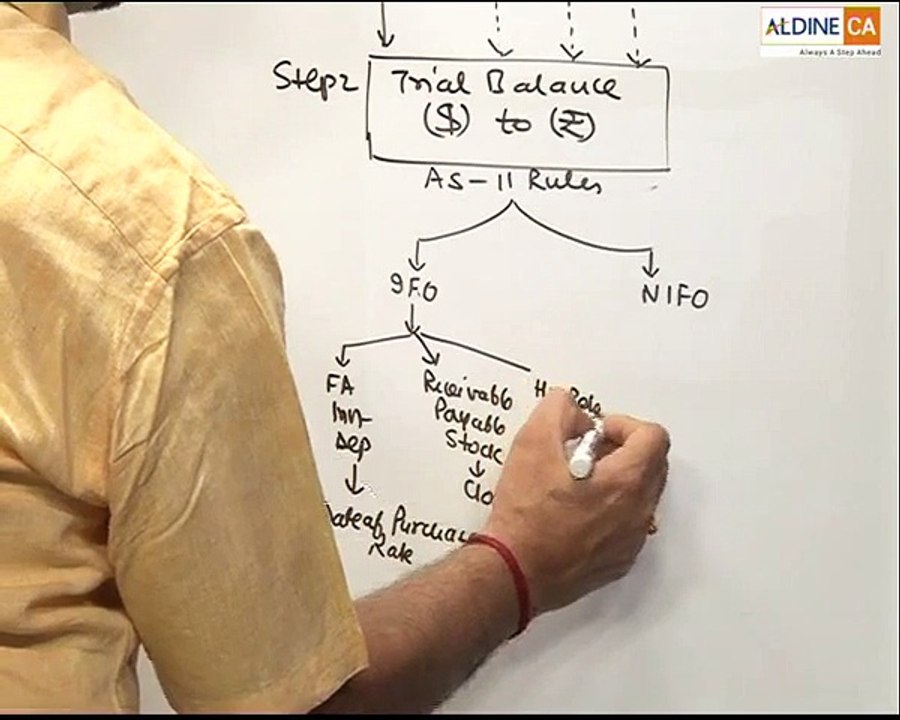 ALDINE CA
Always A Step Ahead
Step2
Trial Balance
($) to (₹)
AS-11 Rules
IFO
NIFO
FA
Inv
Dep
Receivable
Payable
Stock
Clo
Date of Purchase
Rate